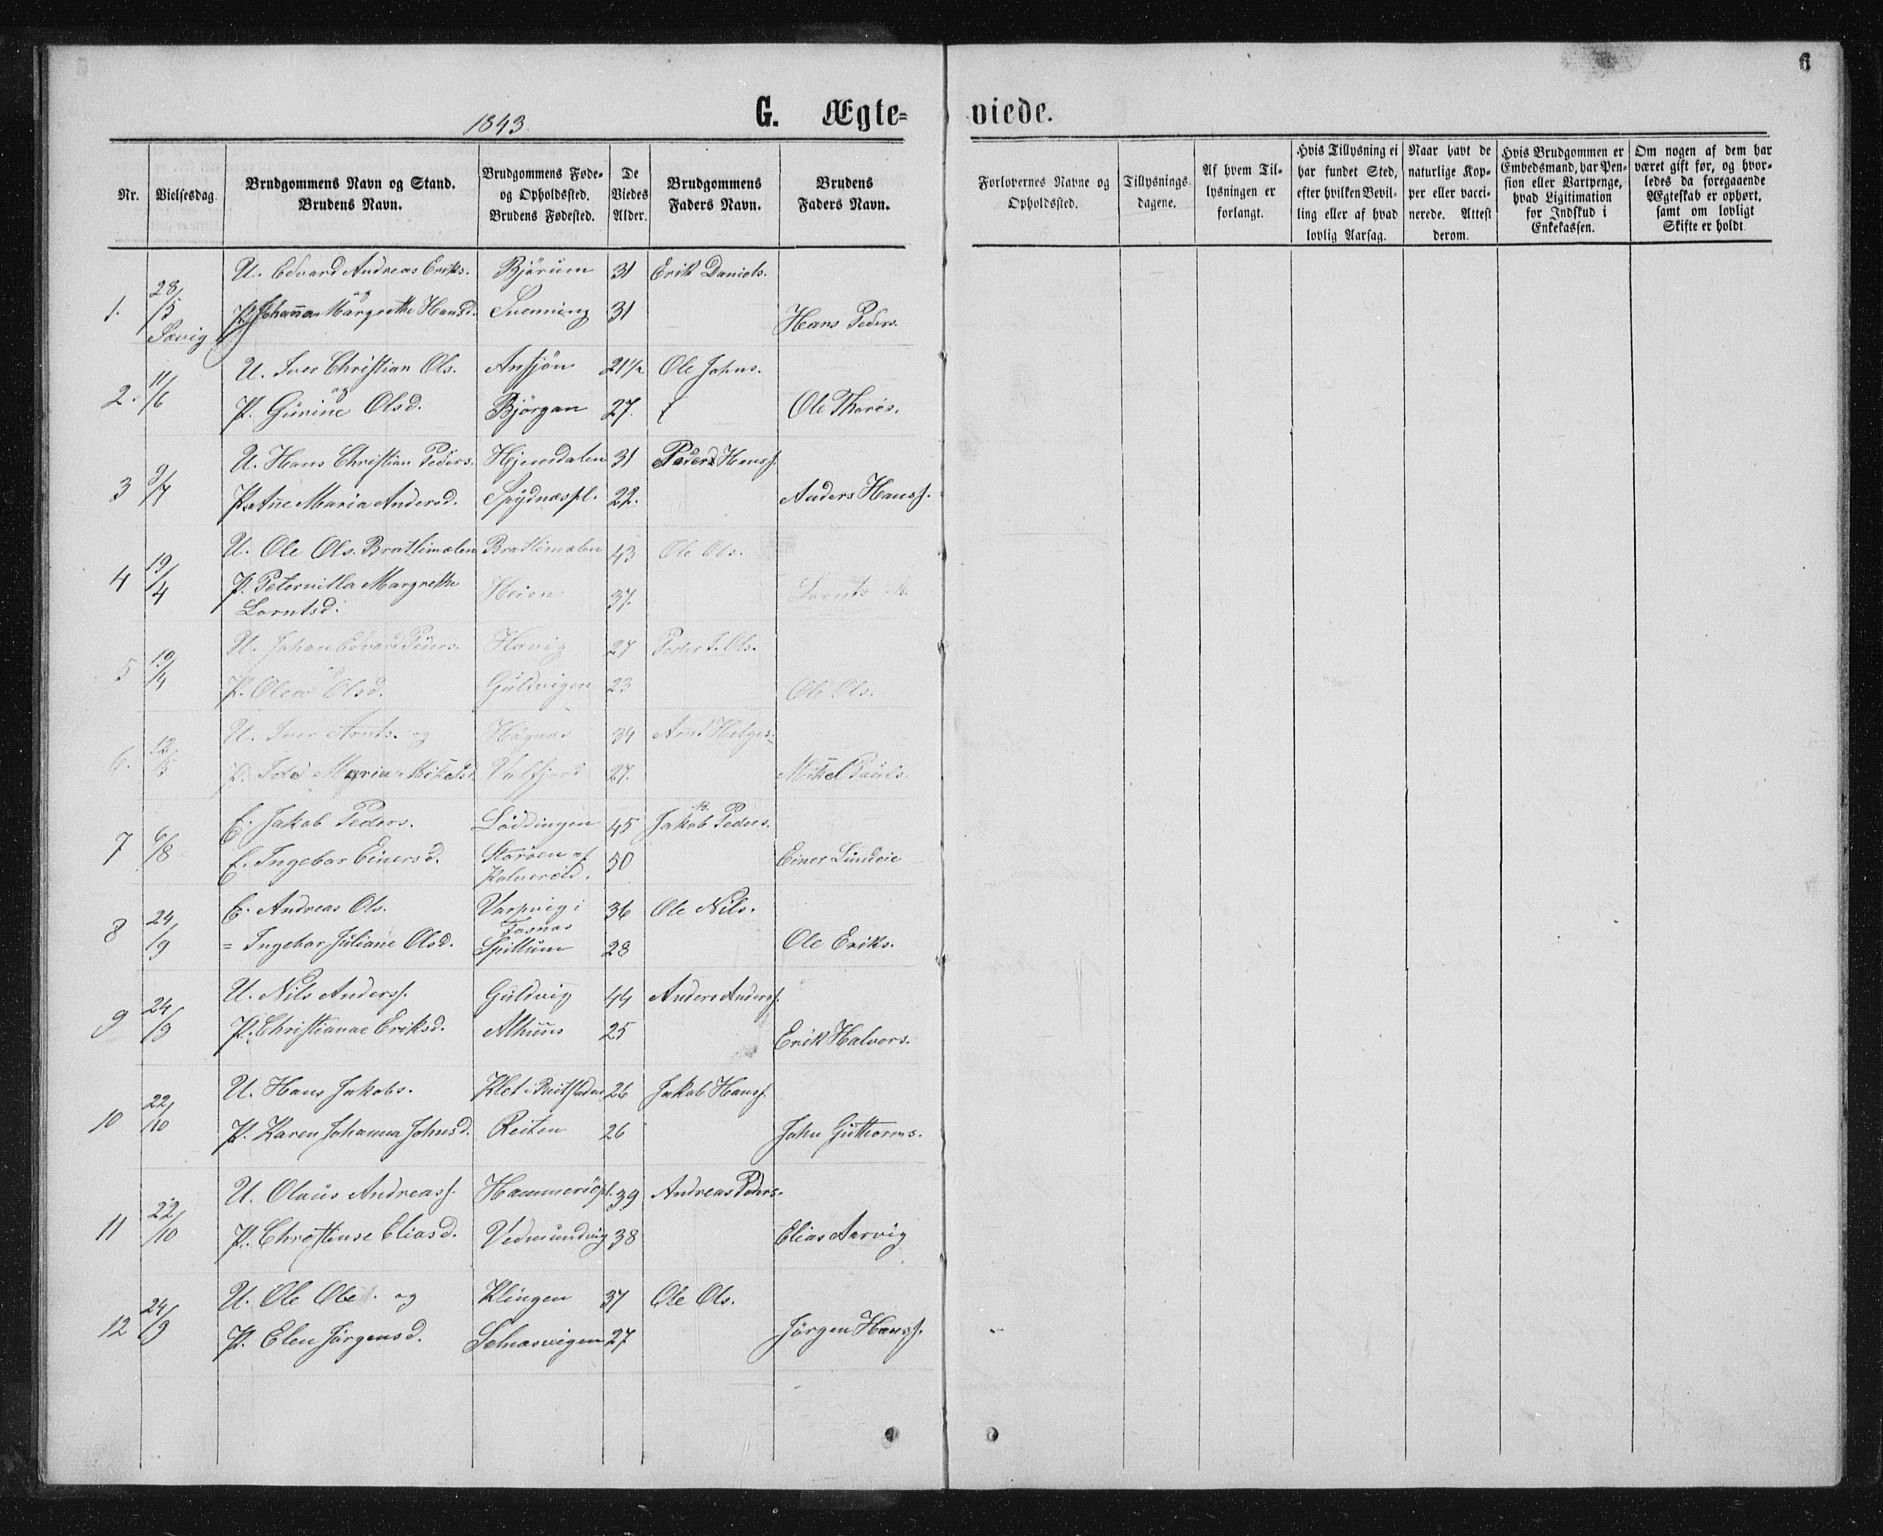 6
1843.
G. Ægte=
viede.
Nr.
Vielsesdag.
Brudgommens Navn og Stand.
Brudens Navn.
Brudgommens Føde-
og Opholdssted.
Brudens Fødested.
De
Viedes
Alder.
Brudgommens
Faders Navn.
Brudens
Faders Navn.
Forlovernes Navne og
Opholdssted.
Tillysnings-
dagene.
Af hvem Til-
lysningen er
forlangt.
Hvis Tillysning ei
har fundet Sted,
efter hvilken Bevil-
ling eller af hvad
lovlig Aarsag.
Naar havt de
naturlige Kop-
per eller vacci-
nerede. Attest
derom.
Hvis Brudgommen er
Embedsmand, har Pen-
sion eller Vartpenge,
hvad Ligitimation
for Indskud i
Enkekassen.
Om nogen af dem har
været gift før, og hvor-
ledes da foregaaende
Ægteskab er ophørt,
samt om lovligt
Skifte er holdt.
1. 28/5 U. Edvard Andreas Eriks. Bjørum 31 Erik Daniels.
og
P. Johanna Margrethe Hansd. Svenning 31 Hans Peders.
Sævig
2. 11/6 U. Iver Christian Ols. 21 1/2 Ole Johns.
og
P. Gurine Olsd. Bjørgan 27. Ole Thores.
3 9/7 U. Hans Christian Peders. Hjemdalen 31 Peder Hanss.
P. Anne Maria Andersd. Spydnæspl. 22. Anders Hanss.
4 19/4 U. Ole Ols. Bratlimælen Bratlimælen 43 Ole Ols.
P. Peternilla Margrethe Heien 37.
Lorntsd.
5 19/4 U. Johan Edvard Peders. Havig 27 Peder Ols.
P. Olsd. Guldvigen 23 Ole Ols.
6. 12/5 U. Iver Arnts. og Høgnæs 34 Arnt Helges.
P. Maria Mikelsd. Valfjord 27. Mikel Pauls.
7 6/8 E. Jakob Peders. Løddingen 45 Jakob Peders.
E. Ingebor Einersd. Storøen af 50 Einer Lundeie
8 24/9 E. Andreas Ols. Varpvig i 36 Ole Nils.
Fosnæs
= Ingebor Juliane Olsd. Spillum 28 Ole Eriks.
9 24/9 U. Nils Anderss. Guldvig 44 Anders Anderss.
P. Christianae Eriksd. Alhuus 25 Erik Halvors.
10 22/10 U. Hans Jakobs. Klet i Beitstaden 26 Jakob Hanss.
P. Karen Johanna Johnsd. Reiten 26 John Guthorms.
11 22/10 U. Olaus Andreass. Hammersøpl. 39 Andreas Peders.
P. Christense Eliasd. Vedmundvig 38 Elias Aarvig
12 24/9 U. Ole Ole. og Klingen 37 Ole Ols.
P. Elen Jørgensd. Selnæsvigen 27 Jørgen Hanss.